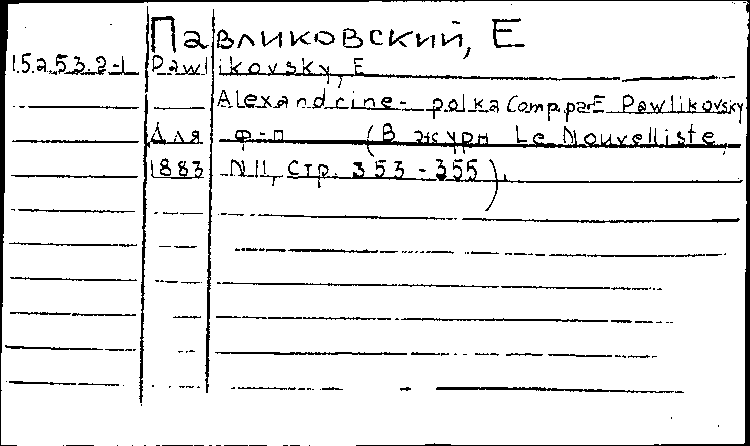 Павликовский, Е
15.2.53.2-1 Pawlikovsky, E
Alexandrine - polka Comp. par E Pawlikovsky
Для ф-п (В журн Le Nouvelliste,
1883 N 11, стр. 353 - 355).